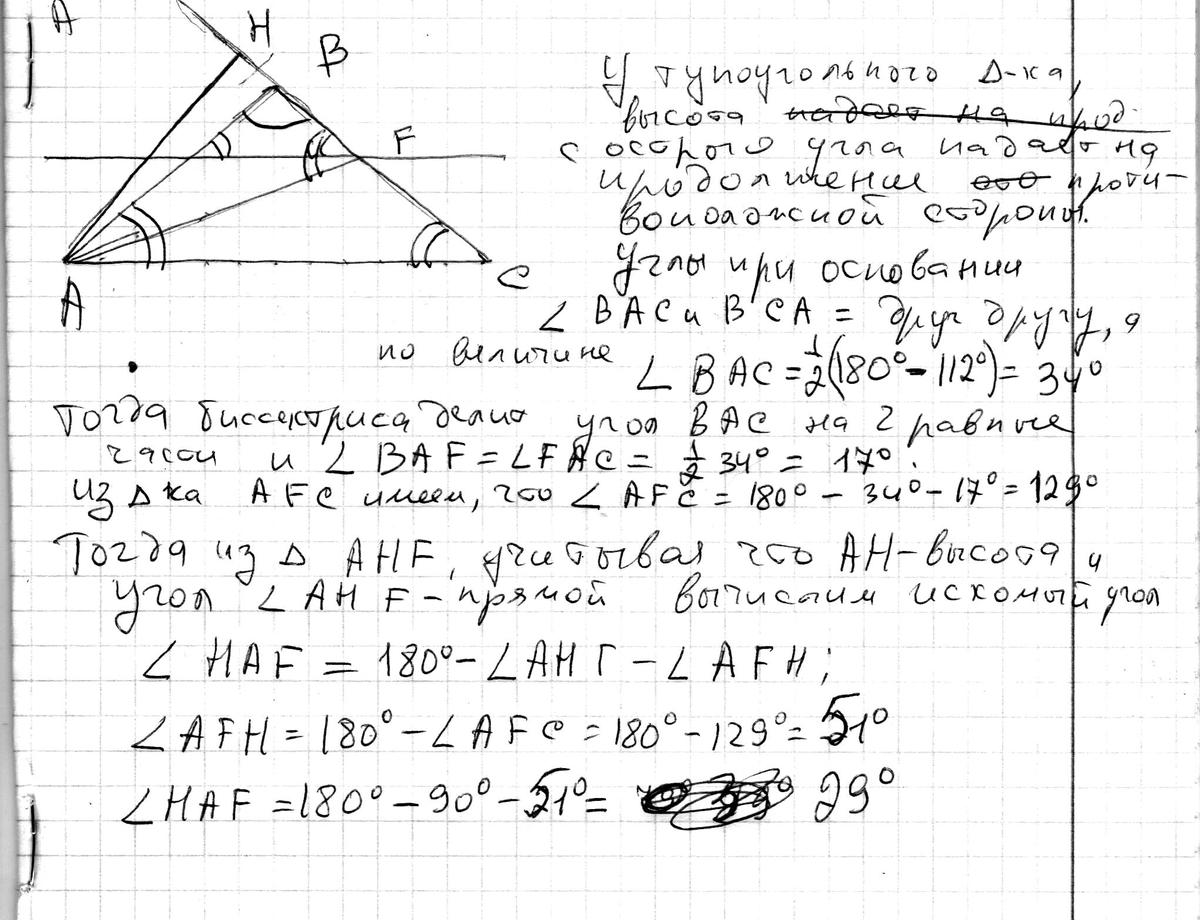 А
H
B
F
A
C
У тупоугольного Δ-ка,
высота надает на прод.
с острого угла падает на
продолжение его проти-
воположной стороны.
Углы при основании
∠ BAC и BCA = друг другу, а
по величине
∠ BAC = 1/2(180° - 112°) = 34°
Тогда биссектриса делит угол BAC на 2 равные
части и ∠ BAF = ∠FAC = 1/2 34° = 17°.
Из Δ ка AFC имеем, что ∠ AFC = 180° - 34° - 17° = 129°
Тогда из Δ AHF, учитывая что AH-высота и
угол ∠AHF - прямой вычислим искомый угол
∠ HAF = 180° - ∠AHF - ∠AFH;
∠AFH = 180° - ∠AFC = 180° - 129° = 51°
∠HAF = 180° - 90° - 51° = 29°